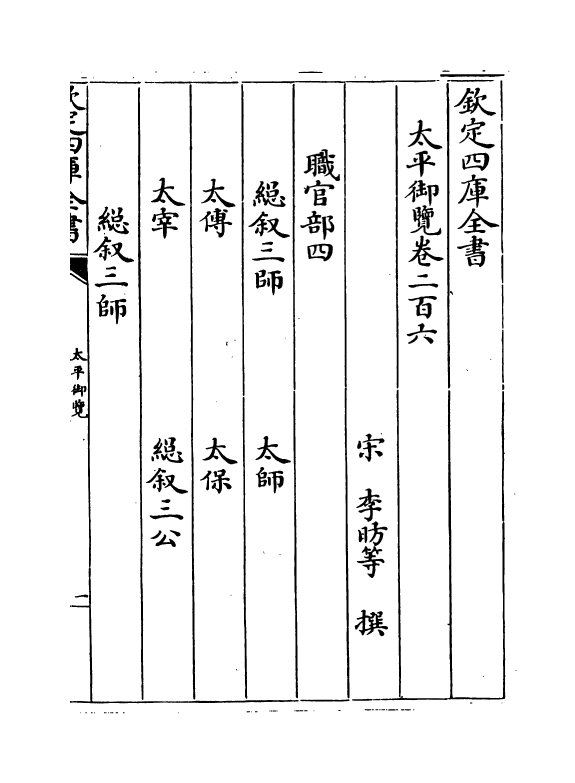 欽定四庫全書
太平御覽卷二百六
宋 李昉等 撰
職官部四
緫叙三師 太師
太傅 太保
太宰 緫叙三公
緫叙三師
欽定四庫全書 太平御覽 二